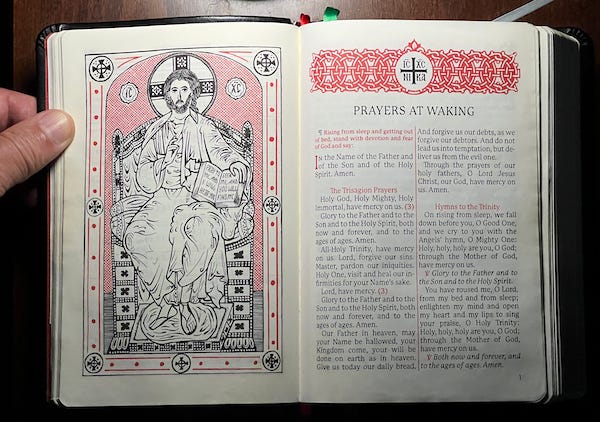 IC XC
IC XC
NI KA
PRAYERS AT WAKING
¶ Rising from sleep and getting out
of bed, stand with devotion and fear
of God and say:
In the Name of the Father and
of the Son and of the Holy
Spirit. Amen.
The Trisagion Prayers
Holy God, Holy Mighty, Holy
Immortal, have mercy on us. (3)
Glory to the Father and to the
Son and to the Holy Spirit, both
now and forever, and to the
ages of ages. Amen.
All-Holy Trinity, have mercy
on us. Lord, forgive our sins.
Master, pardon our iniquities.
Holy One, visit and heal our in-
firmities for your Name's sake.
Lord, have mercy. (3)
Glory to the Father and to the
Son and to the Holy Spirit, both
now and forever, and to the
ages of ages. Amen.
Our Father in heaven, may
your Name be hallowed, your
Kingdom come, your will be
done on earth as in heaven.
Give us today our daily bread.
And forgive us our debts, as we
forgive our debtors. And do not
lead us into temptation, but de-
liver us from the evil one.
Through the prayers of our
holy fathers, O Lord Jesus
Christ, our God, have mercy on
us. Amen.
Hymns to the Trinity
On rising from sleep, we fall
down before you, O Good One,
and we cry to you with the
Angels' hymn, O Mighty One:
Holy, holy, holy are you, O God;
through the Mother of God,
have mercy on us.
℣ Glory to the Father and to
the Son and to the Holy Spirit.
You have roused me, O Lord,
from my bed and from sleep;
enlighten my mind and open
my heart and my lips to sing
your praise, O Holy Trinity:
Holy, holy, holy are you, O God;
through the Mother of God,
have mercy on us.
℣ Both now and forever, and
to the ages of ages. Amen.